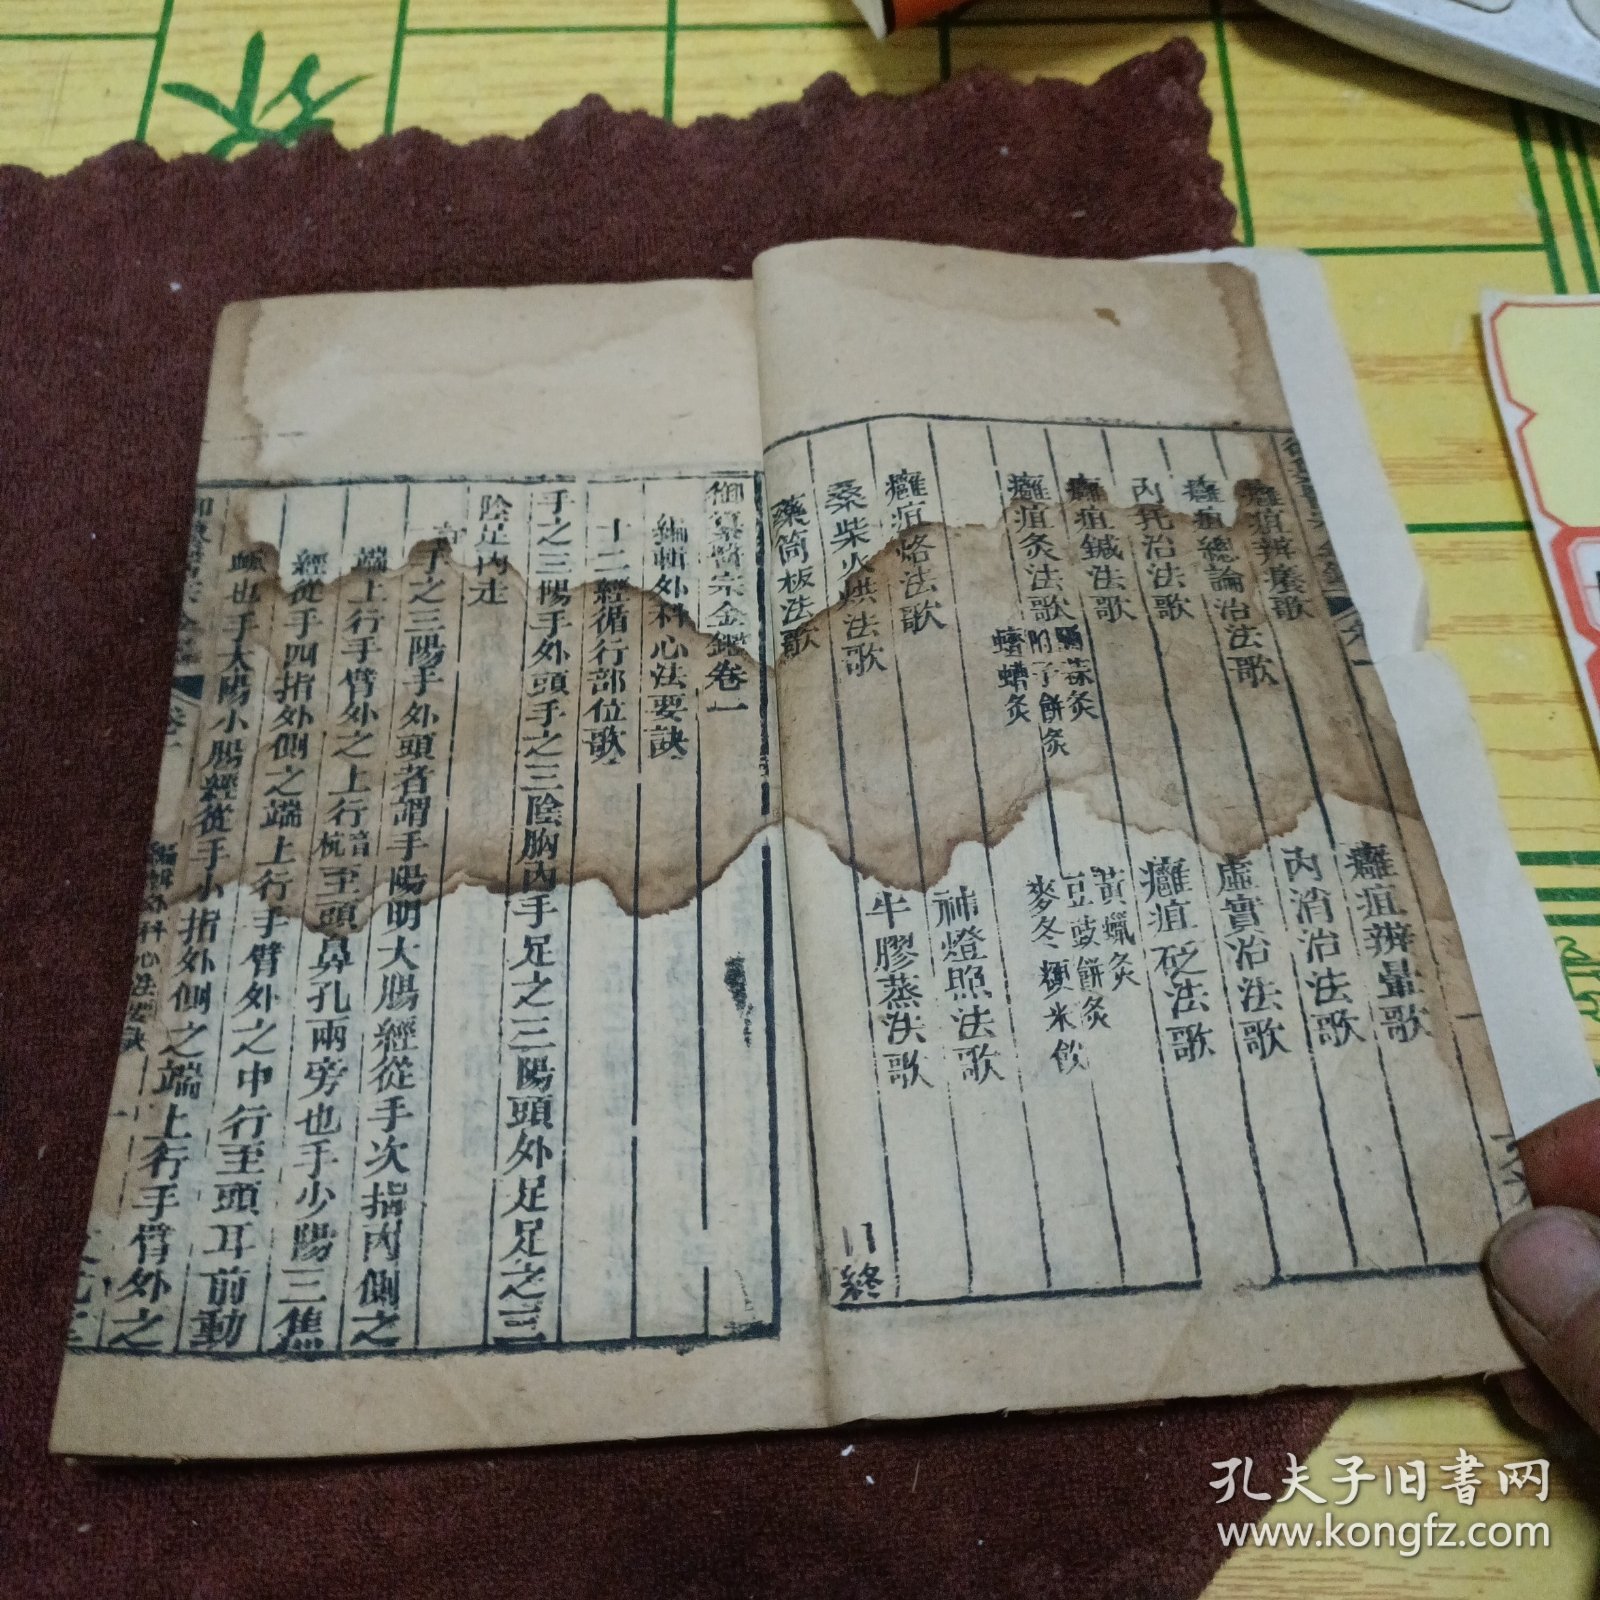 癰疽辨膿歌 癰疽辨暈歌
癰疽總論治法歌 內消治法歌
內托治法歌 虛實治法歌
癰疽鍼法歌 癰疽砭法歌
癰疽灸法歌
隔蒜灸 黃蠟灸
附子餅灸 豆豉餅灸
蠐螬灸 麥冬粳米飲
癰疽烙法歌 神燈照法歌
桑柴火烘法歌 牛膠蒸法歌
藥筒拔法歌
目終
御纂醫宗金鑑卷一
編輯外科心法要訣
十二經循行部位歌
手之三陽手外頭手之三陰胸內手足之三陽頭外足足之三
陰足內走
手之三陽手外頭者謂手陽明大腸經從手次指內側之
端上行手臂外之上行音杭至頭鼻孔兩旁也手少陽三焦
經從手四指外側之端上行手臂外之中行至頭耳前動
脈也手太陽小腸經從手小指外側之端上行手臂外之
卷一
編輯外科心法要訣
一
孔夫子旧书网
www.kongfz.com